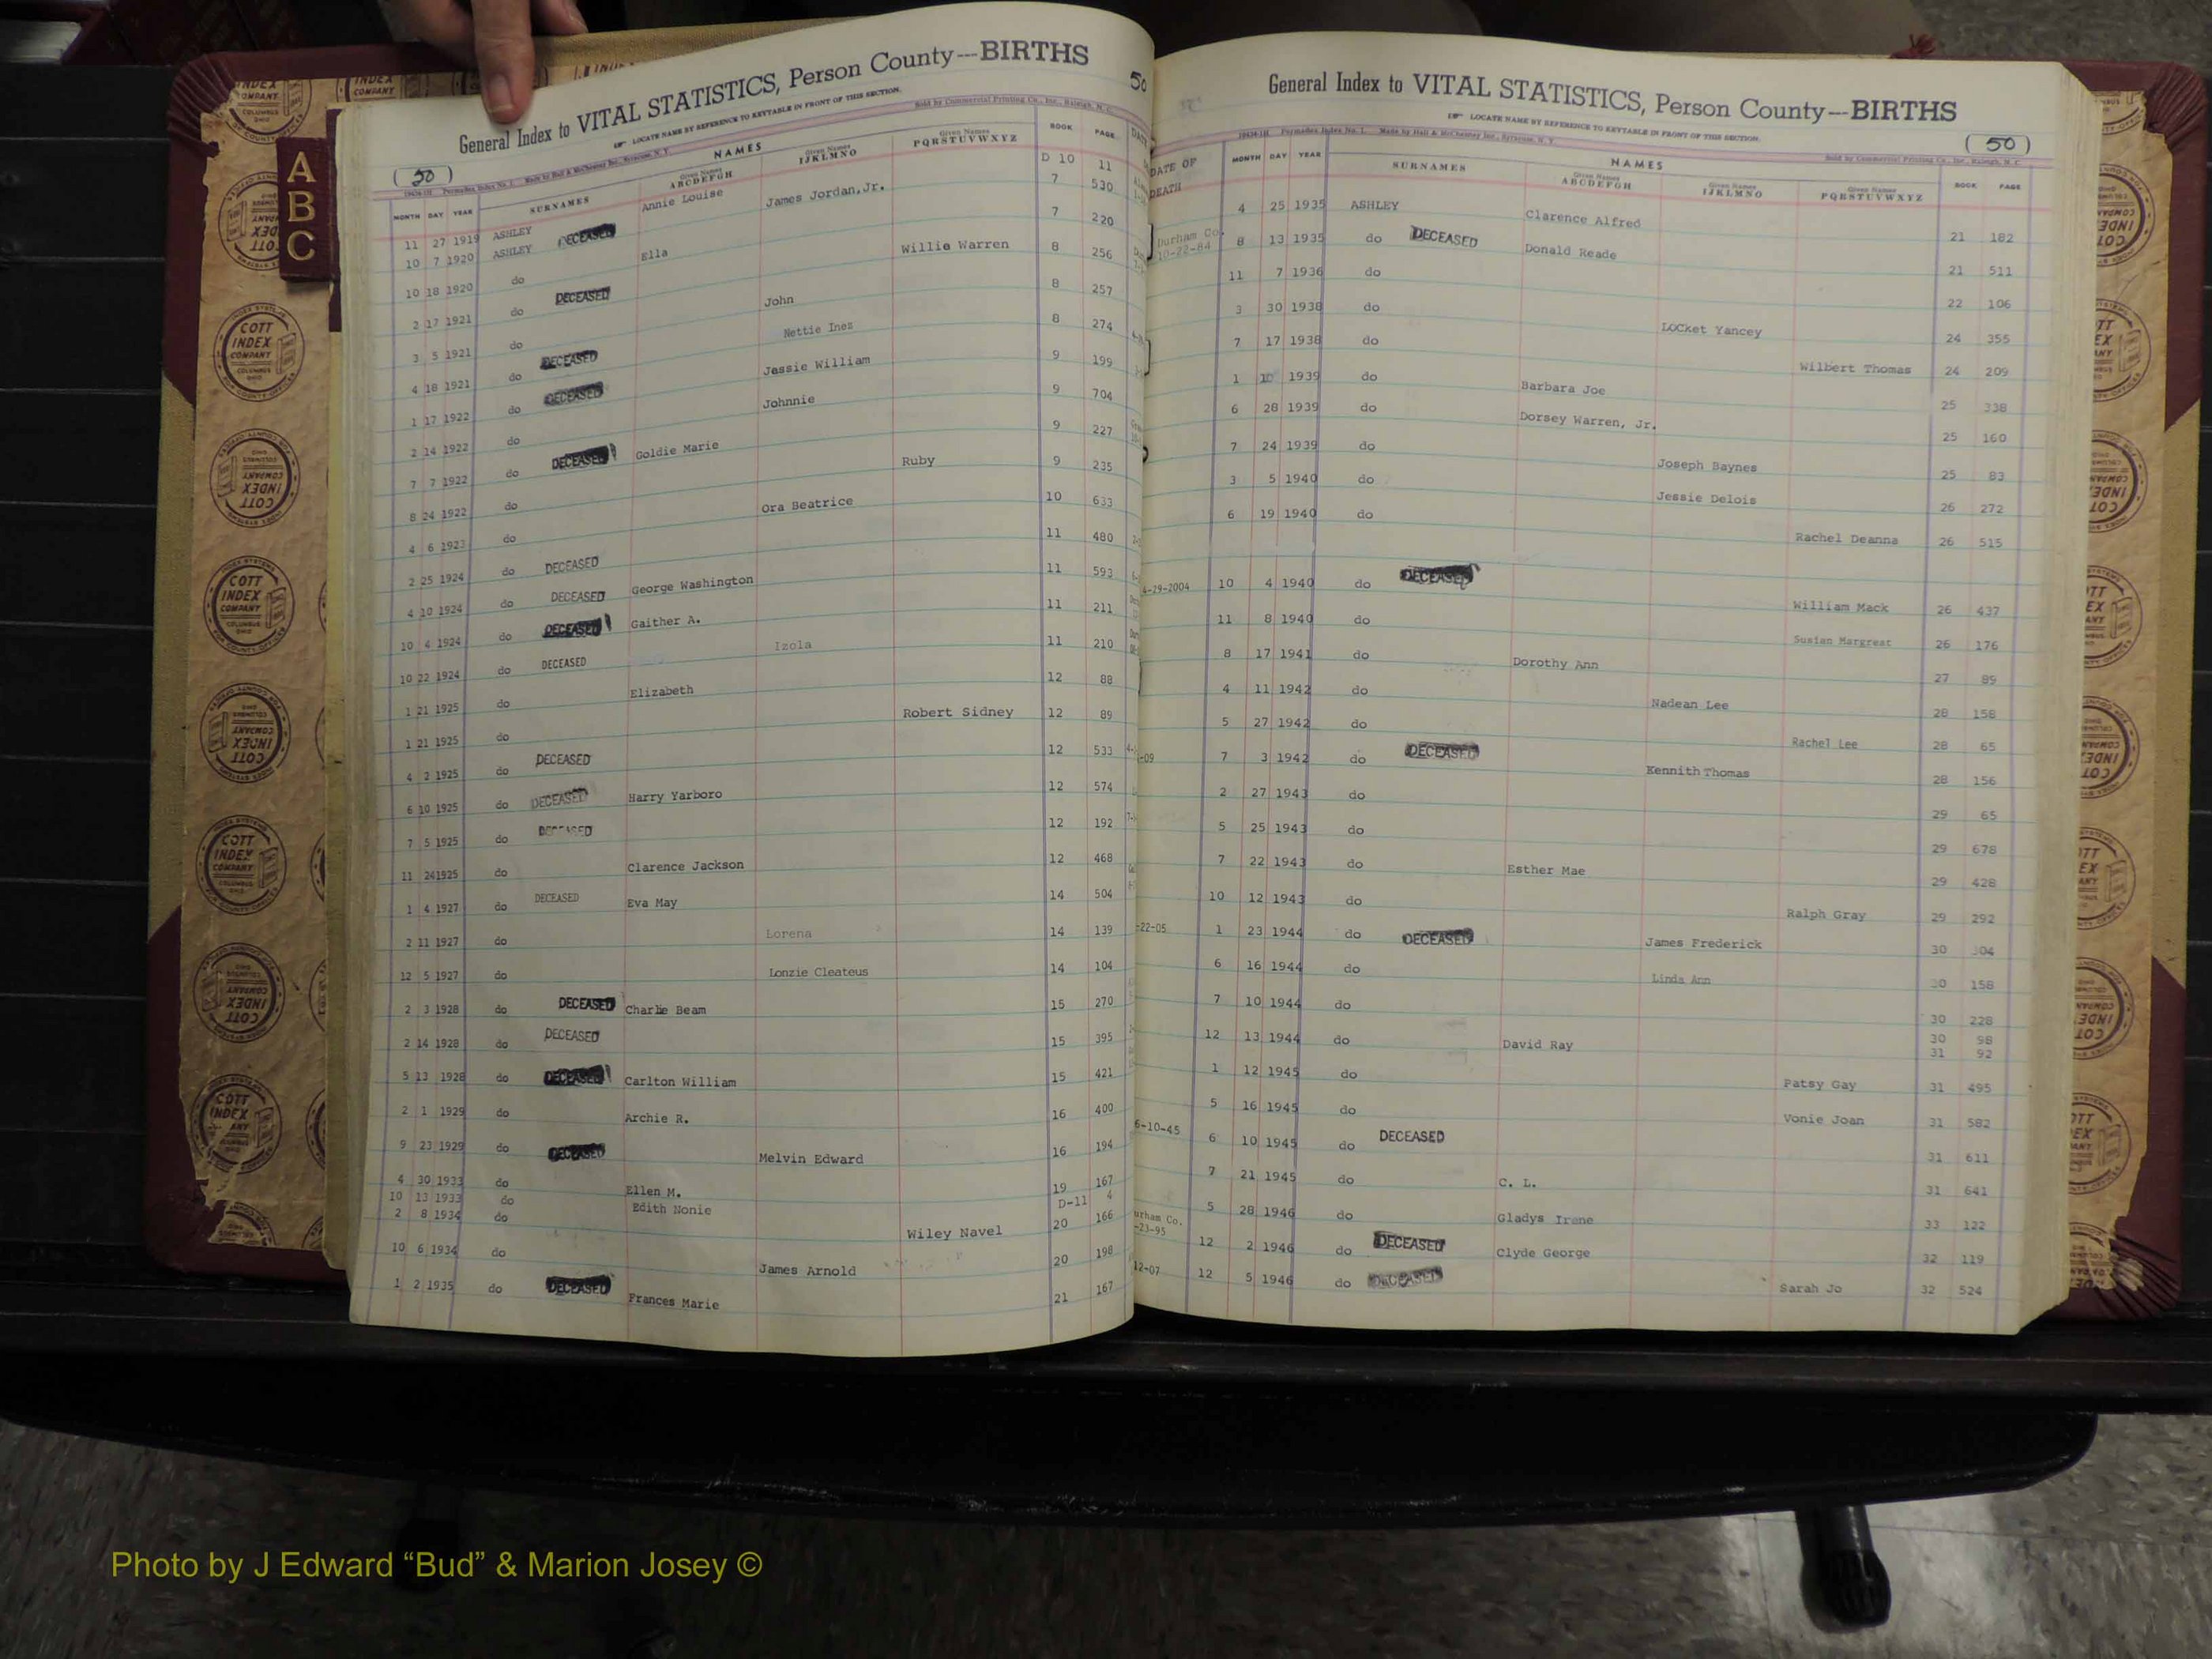 General Index to VITAL STATISTICS, Person County—BIRTHS
LOCATE NAME BY REFERENCE TO KEYTABLE IN FRONT OF THIS SECTION.
(50)
Sold by Commercial Printing Co., Inc., Raleigh, N. C.
NAMES
MONTH DAY YEAR SURNAMES Given Names ABCDEFGH Given Names IJKLMNO Given Names PQRSTUVWXYZ BOOK PAGE
11 27 1919 ASHLEY Annie Louise D 10 11
10 7 1920 ASHLEY DECEASED James Jordan,Jr. 7 530
10 18 1920 do Ella 7 220
2 17 1921 do DECEASED Willie Warren 8 256
3 5 1921 do John 8 257
4 18 1921 do DECEASED Nettie Inez 8 274
1 17 1922 do DECEASED Jessie William 9 199
2 14 1922 do Johnnie 9 704
7 7 1922 do DECEASED Goldie Marie 9 227
8 24 1922 do Ruby 9 235
4 6 1923 do Ora Beatrice 10 633
2 25 1924 do DECEASED 11 480
4 10 1924 do DECEASED George Washington 11 593
10 4 1924 do DECEASED Gaither A. 11 211
10 22 1924 do DECEASED Izola 11 210
1 21 1925 do Elizabeth 12 88
1 21 1925 do Robert Sidney 12 89
4 2 1925 do DECEASED 12 533
6 10 1925 do DECEASED Harry Yarboro 12 574
7 5 1925 do DECEASED 12 192
11 24 1925 do Clarence Jackson 12 468
1 4 1927 do DECEASED Eva May 14 504
2 11 1927 do Lorena 14 139
12 5 1927 do Lonzie Cleateus 14 104
2 3 1928 do DECEASED Charlie Beam 15 270
2 14 1928 do DECEASED 15 395
5 13 1928 do DECEASED Carlton William 15 421
2 1 1929 do Archie R. 16 400
9 23 1929 do DECEASED Melvin Edward 16 194
4 30 1933 do Ellen M. 19 167
10 13 1933 do Edith Nonie D-11 4
2 8 1934 do Wiley Navel 20 166
10 6 1934 do James Arnold 20 198
1 2 1935 do DECEASED Frances Marie 21 167
General Index to VITAL STATISTICS, Person County—BIRTHS
LOCATE NAME BY REFERENCE TO KEYTABLE IN FRONT OF THIS SECTION.
(50)
Sold by Commercial Printing Co., Inc., Raleigh, N. C.
NAMES
DATE OF DEATH MONTH DAY YEAR SURNAMES Given Names ABCDEFGH Given Names IJKLMNO Given Names PQRSTUVWXYZ BOOK PAGE
4 25 1935 ASHLEY Clarence Alfred 21 182
Durham Co. 10-22-84 8 13 1935 do DECEASED Donald Reade 21 511
11 7 1936 do 22 106
3 30 1938 do LOCket Yancey 24 355
7 17 1938 do Wilbert Thomas 24 209
1 10 1939 do Barbara Joe 25 338
6 28 1939 do Dorsey Warren, Jr. 25 160
7 24 1939 do Joseph Baynes 25 83
3 5 1940 do Jessie Delois 26 272
6 19 1940 do Rachel Deanna 26 515
4-29-2004 10 4 1940 do DECEASED William Mack 26 437
11 8 1940 do Susian Margreat 26 176
8 17 1941 do Dorothy Ann 27 89
4 11 1942 do Nadean Lee 28 158
5 27 1942 do Rachel Lee 28 65
-09 7 3 1942 do DECEASED Kennith Thomas 28 156
2 27 1943 do 29 65
5 25 1943 do 29 678
7 22 1943 do Esther Mae 29 428
10 12 1943 do Ralph Gray 29 292
-22-05 1 23 1944 do DECEASED James Frederick 30 304
6 16 1944 do Linda Ann 30 158
7 10 1944 do 30 228
12 13 1944 do David Ray 30 98
31 92
1 12 1945 do Patsy Gay 31 495
5 16 1945 do Vonie Joan 31 582
6-10-45 6 10 1945 do DECEASED 31 611
7 21 1945 do C. L. 31 641
5 28 1946 do Gladys Irene 33 122
urham Co. -23-95 12 2 1946 do DECEASED Clyde George 32 119
12-07 12 5 1946 do DECEASED Sarah Jo 32 524
A
B
C
COTT INDEX COMPANY COLUMBUS OHIO
Photo by J Edward “Bud” & Marion Josey ©